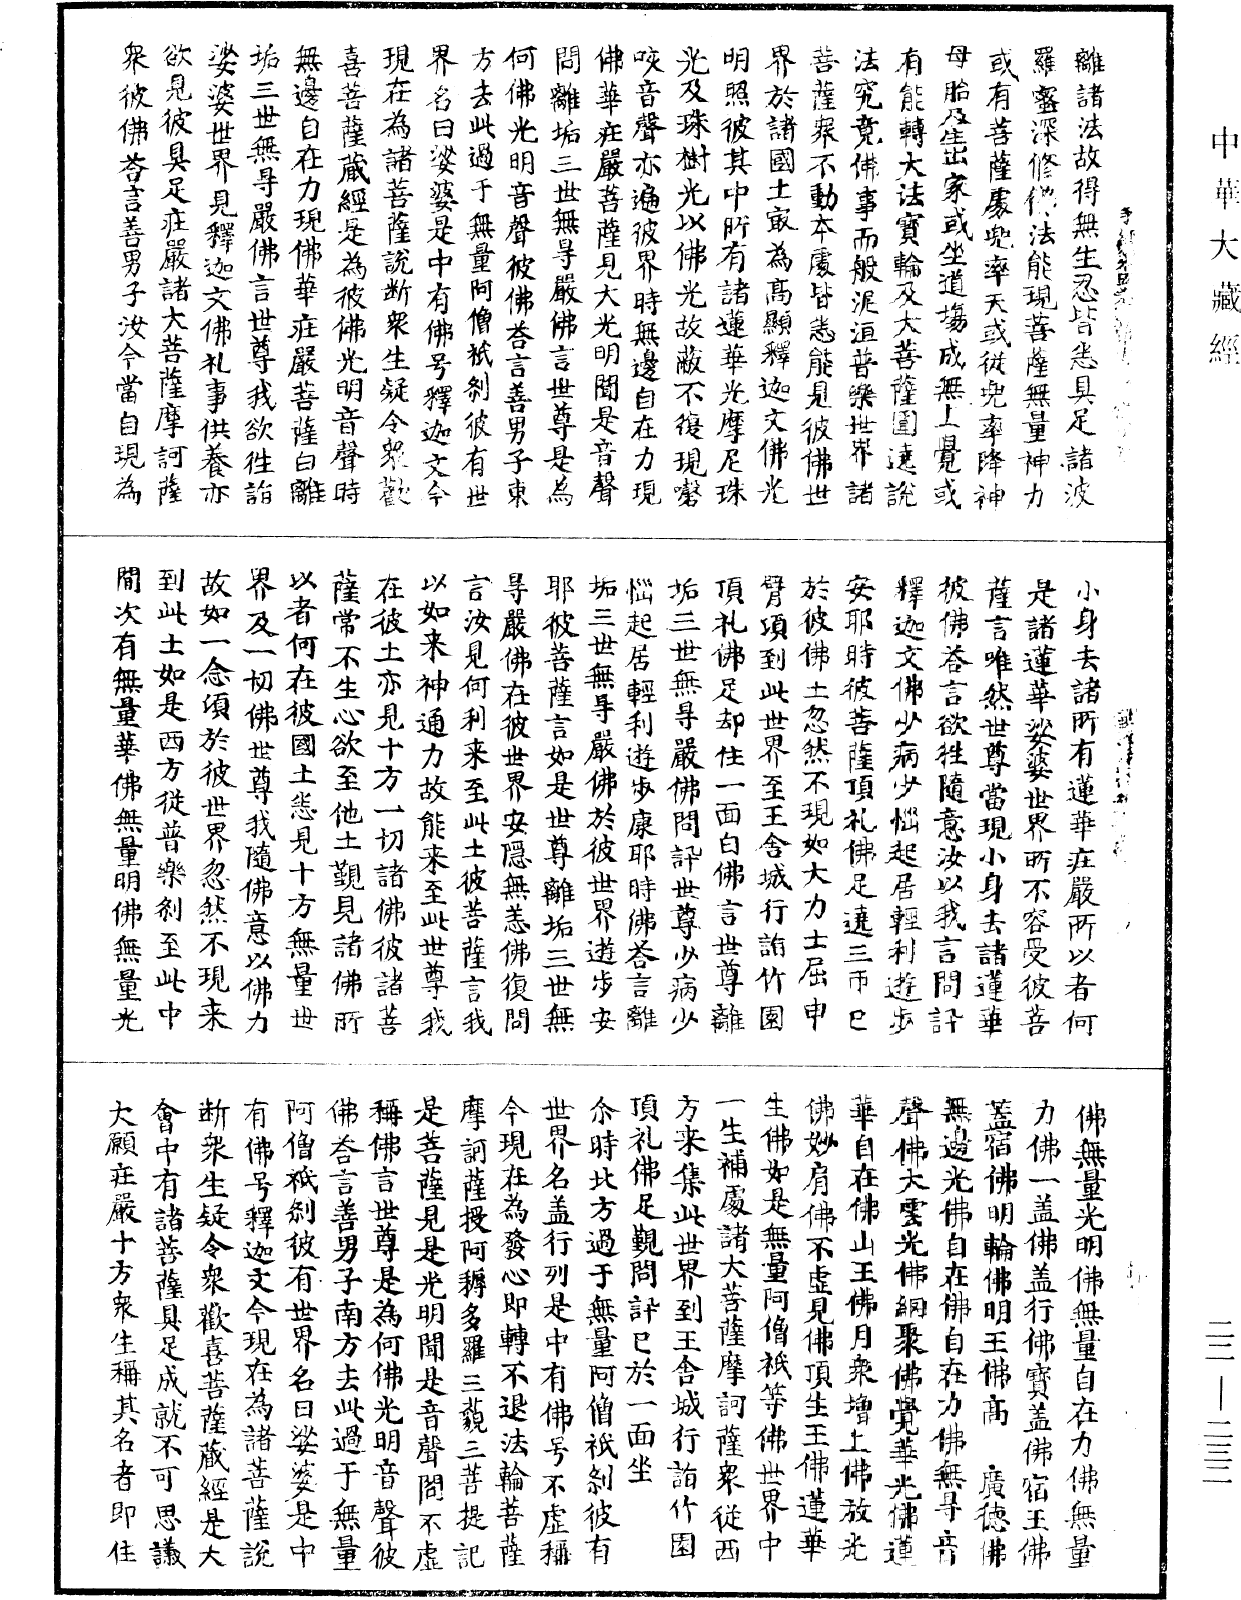 中華大藏經
離諸法故得無生忍皆悉具足諸波
羅蜜深修佛法能現菩薩無量神力
或有菩薩處兜率天或從兜率降神
母胎及生出家或坐道場成無上覺或
有能轉大法寶輪及大菩薩圍遶說
法究竟佛事而般泥洹普樂世界諸
菩薩衆不動本處皆悉能見彼佛世
界於諸國土㝡為高顯釋迦文佛光
明照彼其中所有諸蓮華光摩尼珠
光及珠樹光以佛光故蔽不復現謦
咳音聲亦遍彼界時無邊自在力現
佛華莊嚴菩薩見大光明聞是音聲
問離垢三世無㝵嚴佛言世尊是為
何佛光明音聲彼佛荅言善男子東
方去此過于無量阿僧祇剎彼有世
界名曰娑婆是中有佛号釋迦文今
現在為諸菩薩說断衆生疑令衆歡
喜菩薩蔵經是為彼佛光明音聲時
無邊自在力現佛華莊嚴菩薩白離
垢三世無㝵嚴佛言世尊我欲徃詣
娑婆世界見釋迦文佛礼事供養亦
欲見彼具足莊嚴諸大菩薩摩訶薩
衆彼佛荅言善男子汝今當自現為
小身去諸所有蓮華莊嚴所以者何
是諸蓮華娑婆世界所不容受彼菩
薩言唯然世尊當現小身去諸蓮華
彼佛荅言欲徃隨意汝以我言問訊
釋迦文佛少病少惱起居輕利遊步
安耶時彼菩薩頂礼佛足遶三帀已
於彼佛土忽然不現如大力士屈申
臂項到此世界至王舍城行詣竹園
頂礼佛足却住一面白佛言世尊離
垢三世無㝵嚴佛問訊世尊少病少
惱起居輕利遊步康耶時佛荅言離
垢三世無㝵嚴佛於彼世界遊步安
耶彼菩薩言如是世尊離垢三世無
㝵嚴佛在彼世界安隱無恙佛復問
言汝見何利来至此土彼菩薩言我
以如来神通力故能来至此世尊我
在彼土亦見十方一切諸佛彼諸菩
薩常不生心欲至他土觐見諸佛所
以者何在彼國土悉見十方無量世
界及一切佛世尊我隨佛意以佛力
故如一念項於彼世界忽然不現来
到此土如是西方從普樂剎至此中
間次有無量華佛無量明佛無量光
佛無量光明佛無量自在力佛無量
力佛一盖佛盖行佛寶盖佛宿王佛
盖宿佛明輪佛明王佛高　廣德佛
無邊光佛自在佛自在力佛無㝵音
聲佛大雲光佛網聚佛覺華光佛蓮
華自在佛山王佛月衆增上佛放光
佛妙肩佛不虛見佛頂生王佛蓮華
生佛如是無量阿僧祇等佛世界中
一生補處諸大菩薩摩訶薩衆從西
方来集此世界到王舍城行詣竹園
頂礼佛足觐問訊已於一面坐
尒時北方過于無量阿僧祇剎彼有
世界名盖行列是中有佛号不虛稱
今現在為發心即轉不退法輪菩薩
摩訶薩授阿耨多羅三藐三菩提記
是菩薩見是光明聞是音聲問不虛
稱佛言世尊是為何佛光明音聲彼
佛荅言善男子南方去此過于無量
阿僧祇剎彼有世界名曰娑婆是中
有佛号釋迦文今現在為諸菩薩說
断衆生疑令衆歡喜菩薩蔵經是大
會中有諸菩薩具足成就不可思議
大願莊嚴十方衆生稱其名者即住
二二—二三二